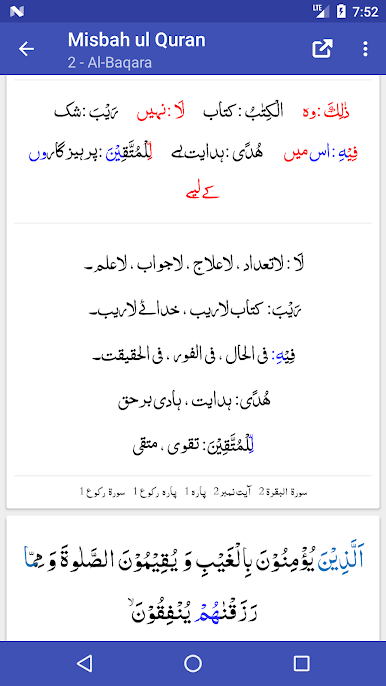 LTE 7:52
Misbah ul Quran
2 - Al-Baqara
ذٰلِكَ : وہ الْكِتٰبُ : کتاب لَا : نہیں رَيْبَ : شک
فِيْهِ : اس میں هُدًى : ہدایت ہے لِّلْمُتَّقِيْنَ : پرہیزگاروں
کے لیے
لَا : لاتعداد ، لاعلاج ، لاجواب ، لاعلم۔
رَيْبَ : کتاب لاریب ، خدائے لاریب۔
فِيْهِ : فی الحال ، فی الفور ، فی الحقیقت۔
هُدًى : ہدایت ، ہادی برحق
لِّلْمُتَّقِيْنَ : تقوی ، متقی
سورة البقرة 2 آیت نمبر 2 پارہ 1 پارہ رکوع 1 سورة رکوع 1
الَّذِيْنَ يُؤْمِنُوْنَ بِالْغَيْبِ وَ يُقِيْمُوْنَ الصَّلٰوةَ وَ مِمَّا
رَزَقْنٰهُمْ يُنْفِقُوْنَۙ